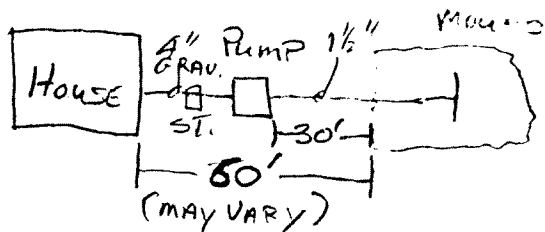 House
4"
GRAV.
ST.
Pump
1½"
Mound
30'
60'
(MAY VARY)